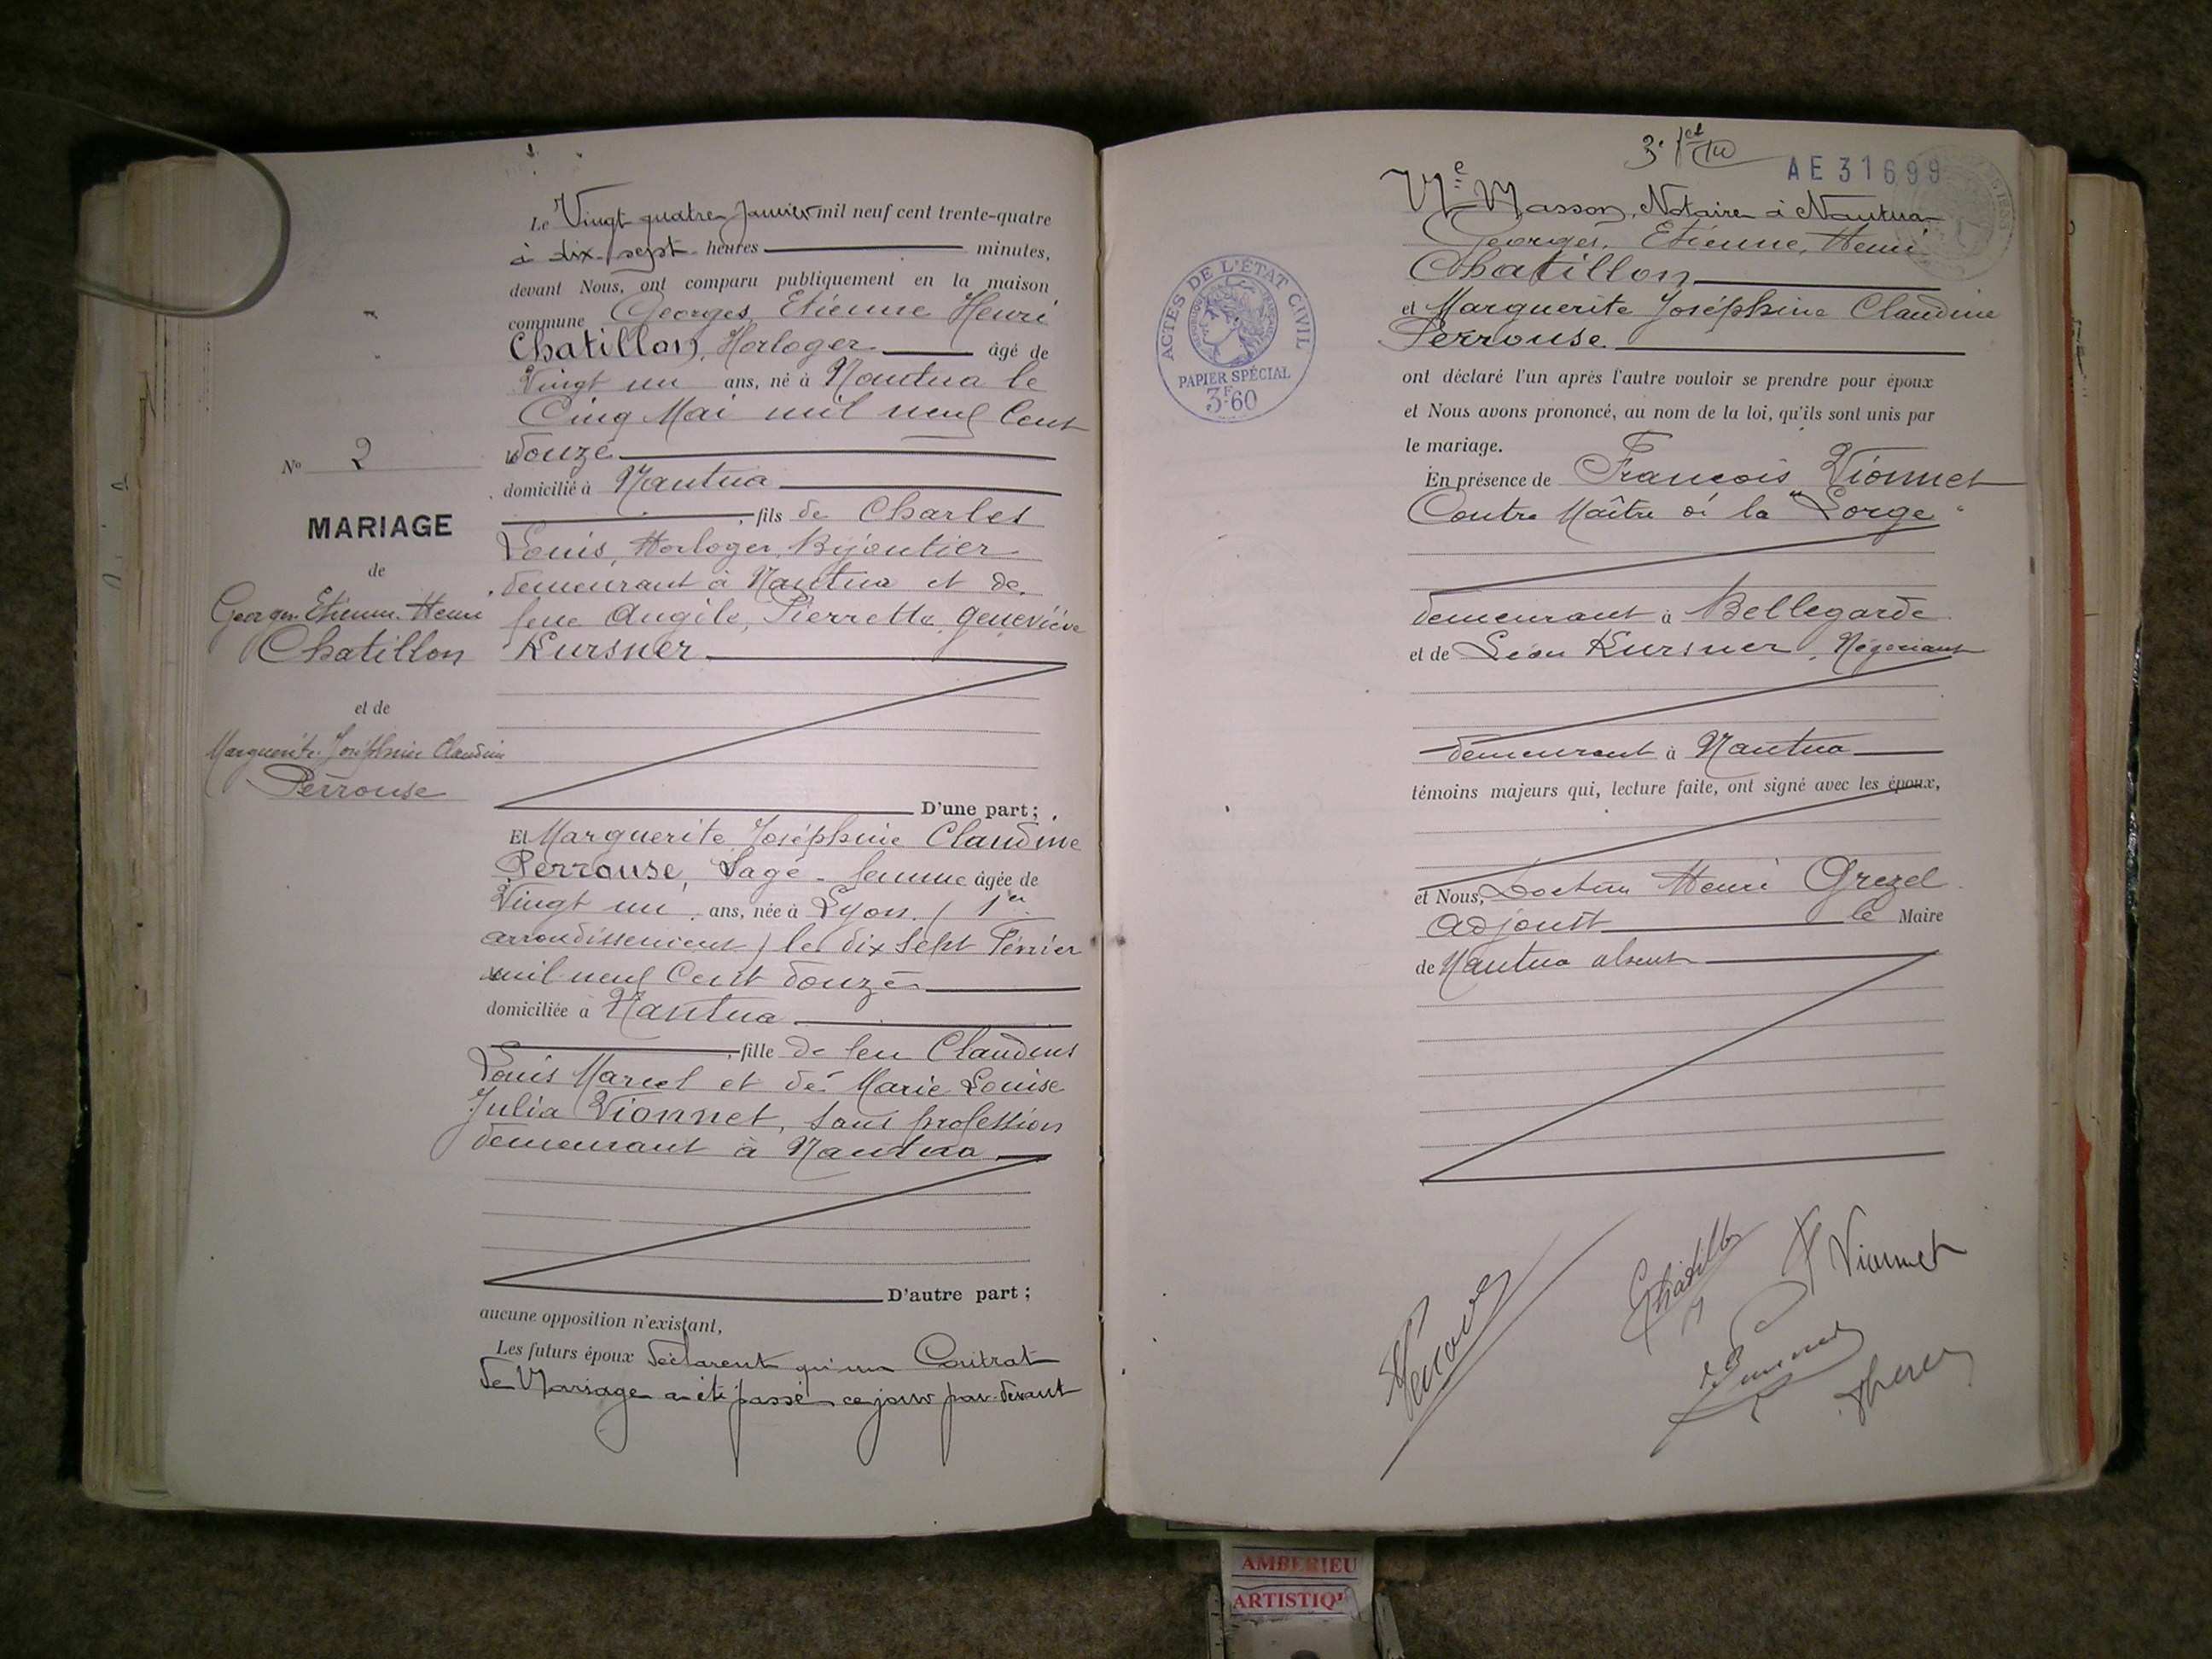 Le Vingt quatre Janvier mil neuf cent trente-quatre
à dix-sept heures minutes,
devant Nous, ont comparu publiquement en la maison
commune Georges Etienne Henri
Chatillon, Horloger âgé de
Vingt un ans, né à Nantua le
Cinq Mai mil neuf Cent
douze
domicilié à Nantua
fils de Charles
Louis, Horloger, Bijoutier
demeurant à Nantua et de
feue Angèle, Pierrette, Geneviève
Kursner
D'une part ;
Et Marguerite Joséphine Claudine
Perrouse, Sage-femme âgée de
Vingt un ans, née à Lyon (1er
arrondissement) le dix sept Février
mil neuf Cent douze
domiciliée à Nantua
fille de feu Claudius
Louis Marcel et de Marie Louise
Julia Vionnet, sans profession
demeurant à Nantua
D'autre part ;
aucune opposition n'existant,
Les futurs époux déclarent qu'un Contrat
de Mariage a été passé ce jour par-devant
No 2
MARIAGE
de
Georges Etienne Henri
Chatillon
et de
Marguerite Joséphine Claudine
Perrouse
AE 31699
Me Masson, Notaire à Nantua
Georges, Etienne, Henri
Chatillon
et Marguerite Joséphine Claudine
Perrouse
ont déclaré l'un après l'autre vouloir se prendre pour époux
et Nous avons prononcé, au nom de la loi, qu'ils sont unis par
le mariage.
En présence de François Vionnet
Contre Maître à la "Lorge"
demeurant à Bellegarde
et de Léon Kursner, Négociant
demeurant à Nantua
témoins majeurs qui, lecture faite, ont signé avec les époux,
et Nous, Docteur Henri Grezel
Adjoint le Maire
de Nantua absent
GChatillon
F Vionnet
ACTES DE L'ÉTAT CIVIL
PAPIER SPÉCIAL
3F60
AMBERIEU
ARTISTIQ